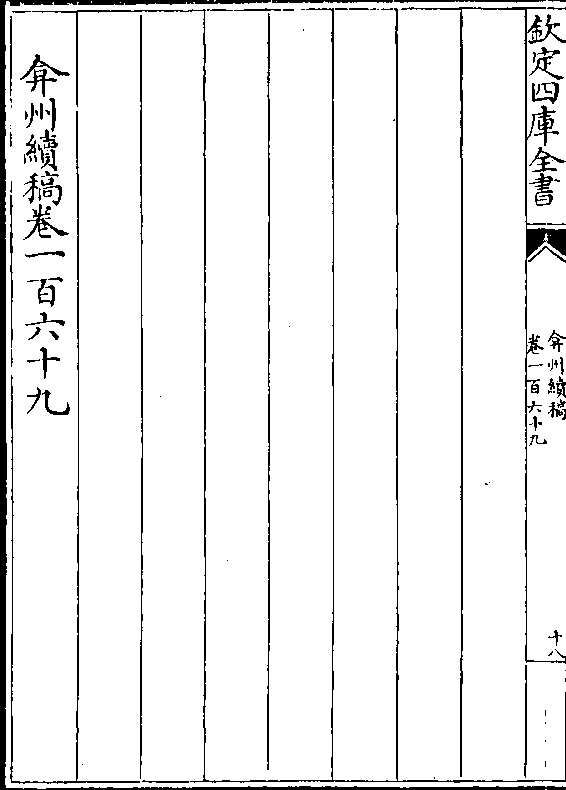 欽定四庫全書
弇州續稿
卷一百六十九
十八
弇州續稿卷一百六十九